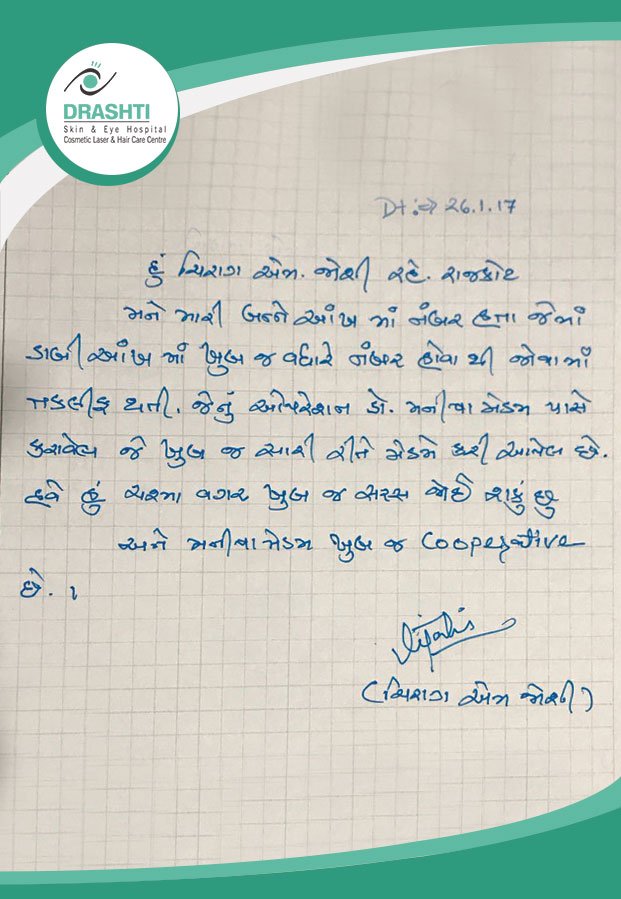 DRASHTI
Skin & Eye Hospital
Cosmetic Laser & Hair Care Centre
Dt:⇒ 26.1.17
હું ચિરાગ એમ. જોશી રહે. રાજકોટ
મને મારી બન્ને આંખ માં નંબર હતા જેમાં
ડાબી આંખ માં ખુબ જ વધારે નંબર હોવા થી જોવામાં
તકલીફ થતી. જેનું ઓપરેશન ડો. મનીષા મેડમ પાસે
કરાવેલ જે ખુબ જ સારી રીતે મેડમે કરી આપેલ છે.
હવે હું ચશ્મા વગર ખુબ જ સરસ જોઈ શકું છુ
અને મનીષા મેડમ ખુબ જ cooperative
છે.
(ચિરાગ એમ જોશી)